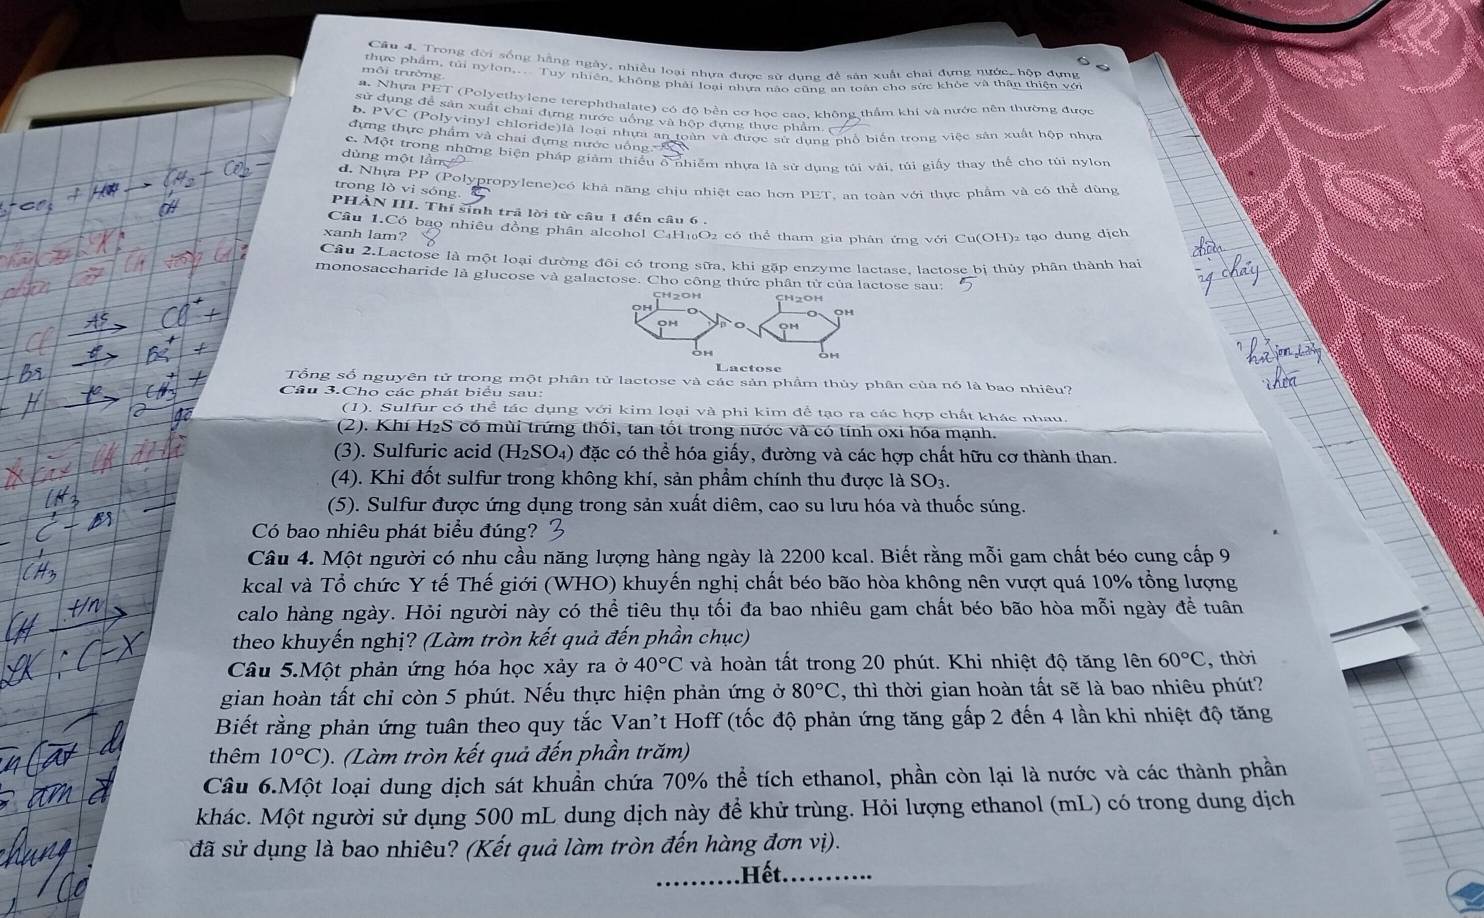 Câu 4. Trong đời sống hằng ngày, nhiều loại nhựa được sử dụng để sản xuất chai đựng nước, hộp đựng
thực phẩm, túi nylon,... Tuy nhiên, không phải loại nhựa nào cũng an toàn cho sức khỏe và thân thiện với
môi trường.
a. Nhựa PET (Polyethylene terephthalate) có độ bền cơ học cao, không thấm khí và nước nên thường được
sử dụng để sản xuất chai đựng nước uống và hộp đựng thực phẩm.
b. PVC (Polyvinyl chloride)là loại nhựa an toàn và được sử dụng phổ biến trong việc sản xuất hộp nhựa
đựng thực phẩm và chai đựng nước uống.
c. Một trong những biện pháp giảm thiểu ô nhiễm nhựa là sử dụng túi vải, túi giấy thay thế cho túi nylon
dùng một lần.
d. Nhựa PP (Polypropylene)có khả năng chịu nhiệt cao hơn PET, an toàn với thực phẩm và có thể dùng
trong lò vi sóng.
PHẦN III. Thí sinh trả lời từ câu 1 đến câu 6 .
Câu 1.Có bao nhiêu đồng phân alcohol C₄H₁₀O₂ có thể tham gia phản ứng với Cu(OH)₂ tạo dung dịch
xanh lam?
Câu 2.Lactose là một loại đường đôi có trong sữa, khi gặp enzyme lactase, lactose bị thủy phân thành hai
monosaccharide là glucose và galactose. Cho công thức phân tử của lactose sau: 5
CH2OH CH2OH
OH O O OH
OH β O OH
OH OH
Lactose
Tổng số nguyên tử trong một phân tử lactose và các sản phẩm thủy phân của nó là bao nhiêu?
Câu 3.Cho các phát biểu sau:
(1). Sulfur có thể tác dụng với kim loại và phi kim để tạo ra các hợp chất khác nhau.
(2). Khí H₂S có mùi trứng thối, tan tốt trong nước và có tính oxi hóa mạnh.
(3). Sulfuric acid (H₂SO₄) đặc có thể hóa giấy, đường và các hợp chất hữu cơ thành than.
(4). Khi đốt sulfur trong không khí, sản phẩm chính thu được là SO₃.
(5). Sulfur được ứng dụng trong sản xuất diêm, cao su lưu hóa và thuốc súng.
Có bao nhiêu phát biểu đúng? 3
Câu 4. Một người có nhu cầu năng lượng hàng ngày là 2200 kcal. Biết rằng mỗi gam chất béo cung cấp 9
kcal và Tổ chức Y tế Thế giới (WHO) khuyến nghị chất béo bão hòa không nên vượt quá 10% tổng lượng
calo hàng ngày. Hỏi người này có thể tiêu thụ tối đa bao nhiêu gam chất béo bão hòa mỗi ngày để tuân
theo khuyến nghị? (Làm tròn kết quả đến phần chục)
Câu 5.Một phản ứng hóa học xảy ra ở 40°C và hoàn tất trong 20 phút. Khi nhiệt độ tăng lên 60°C, thời
gian hoàn tất chỉ còn 5 phút. Nếu thực hiện phản ứng ở 80°C, thì thời gian hoàn tất sẽ là bao nhiêu phút?
Biết rằng phản ứng tuân theo quy tắc Van't Hoff (tốc độ phản ứng tăng gấp 2 đến 4 lần khi nhiệt độ tăng
thêm 10°C). (Làm tròn kết quả đến phần trăm)
Câu 6.Một loại dung dịch sát khuẩn chứa 70% thể tích ethanol, phần còn lại là nước và các thành phần
khác. Một người sử dụng 500 mL dung dịch này để khử trùng. Hỏi lượng ethanol (mL) có trong dung dịch
đã sử dụng là bao nhiêu? (Kết quả làm tròn đến hàng đơn vị).
..........Hết............
CH₃
C - Br
CH₃
C-X
chung